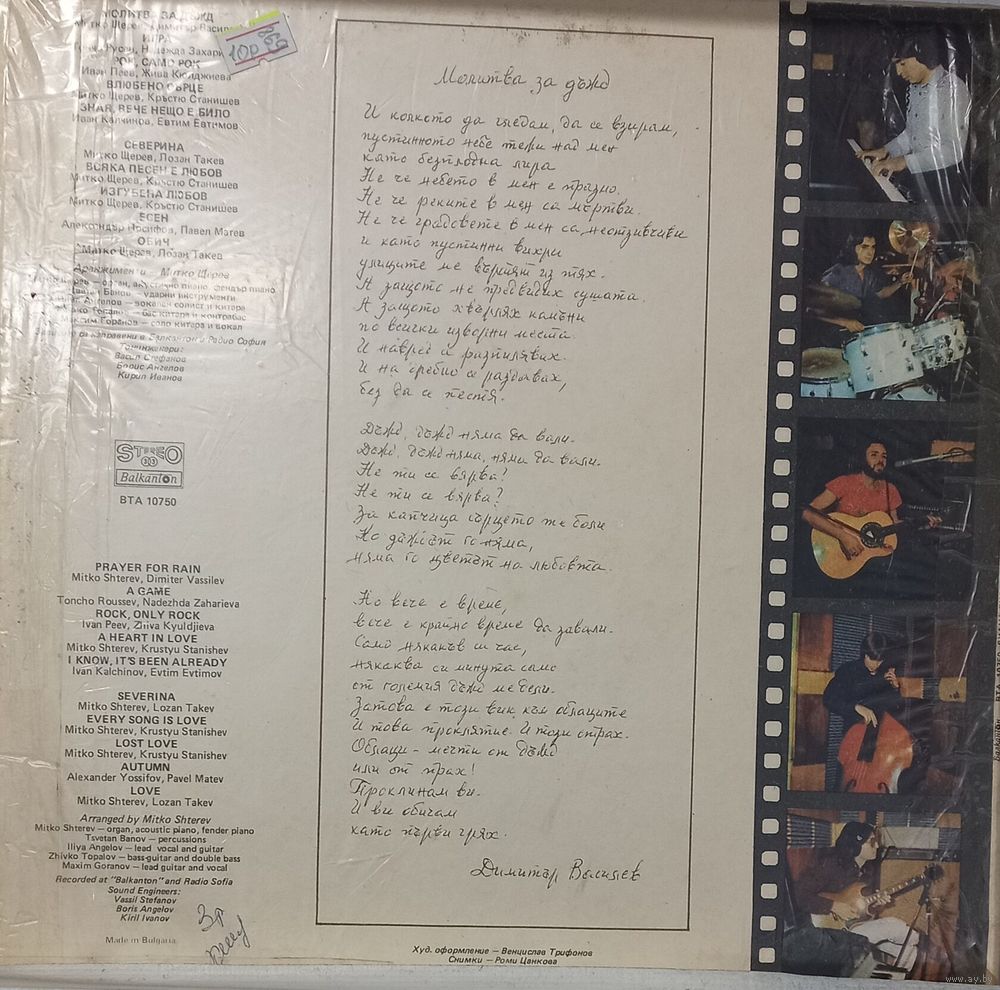 МОЛИТВА ЗА ДЪЖД
Митко Щерев, Димитър
ИГРА
Русев, Надежда
РОК, САМО РОК
Иван Пеев, Жива Кюлджиева
ВЛЮБЕНО СЪРЦЕ
Митко Щерев, Кръстю Станишев
ЗНАЯ, ВЕЧЕ НЕЩО Е БИЛО
Иван Калчинов, Евтим Евтимов
СЕВЕРИНА
Митко Щерев, Лозан Такев
ВСЯКА ПЕСЕН Е ЛЮБОВ
Митко Щерев, Кръстю Станишев
ИЗГУБЕНА ЛЮБОВ
Митко Щерев, Кръстю Станишев
ЕСЕН
Александър Йосифов, Павел Матев
ОБИЧ
Митко Щерев, Лозан Такев
Аранжименти — Митко Щерев
орган, акустично пиано, фендър пиано
Банов — ударни инструменти
Ангелов — вокален солист и китара
бас китара и контрабас
Максим Горанов — соло китара и вокал
направени в Балкантон и Радио София
Тонинженери:
Васил Стефанов
Борис Ангелов
Кирил Иванов
STEREO
33
Balkanton
ВТА 10750
PRAYER FOR RAIN
Mitko Shterev, Dimiter Vassilev
A GAME
Toncho Roussev, Nadezhda Zaharieva
ROCK, ONLY ROCK
Ivan Peev, Zhiva Kyuldjieva
A HEART IN LOVE
Mitko Shterev, Krustyu Stanishev
I KNOW, IT'S BEEN ALREADY
Ivan Kalchinov, Evtim Evtimov
SEVERINA
Mitko Shterev, Lozan Takev
EVERY SONG IS LOVE
Mitko Shterev, Krustyu Stanishev
LOST LOVE
Mitko Shterev, Krustyu Stanishev
AUTUMN
Alexander Yossifov, Pavel Matev
LOVE
Mitko Shterev, Lozan Takev
Arranged by Mitko Shterev
Mitko Shterev — organ, acoustic piano, fender piano
Tsvetan Banov — percussions
Iliya Angelov — lead vocal and guitar
Zhivko Topalov — bass-guitar and double bass
Maxim Goranov — lead guitar and vocal
Recorded at "Balkanton" and Radio Sofia
Sound Engineers:
Vassil Stefanov
Boris Angelov
Kiril Ivanov
Made in Bulgaria
Молитва за дъжд
И колкото да гледам, да се взирам,
пустинното небе тежи над мен
като безплодна лира
Не че небето в мен е празно.
Не че реките в мен са мъртви.
Не че градовете в мен са неотзивчиви
и като пустинни вихри
улиците ме въртят из тях.
А защото не предвидих сушата.
А защото хвърлях камъни
по всички изворни места
И навред се разпилявах.
И на дребно се раздавах,
без да се пестя.
Дъжд, дъжд няма да вали.
Дъжд, дъжд няма, няма да вали.
Не ти се вярва!
Не ти се вярва?
За капчица сърцето же боли
Но дъждът го няма,
няма го цветът на любовта.
Но вече е време,
вече е крайно време да завали.
Само някакъв си час,
някаква си минута само
от големия дъжд ме дели.
Затова е този вик към облаците
И това проклятие. И този страх.
Облаци – мечти от дъжд
или от прах!
Проклинам ви.
И ви обичам
като първи грях.
Димитър Василев
Худ. оформление — Венцислав Трифонов
Снимки — Роми Цанкова
www.ay.by